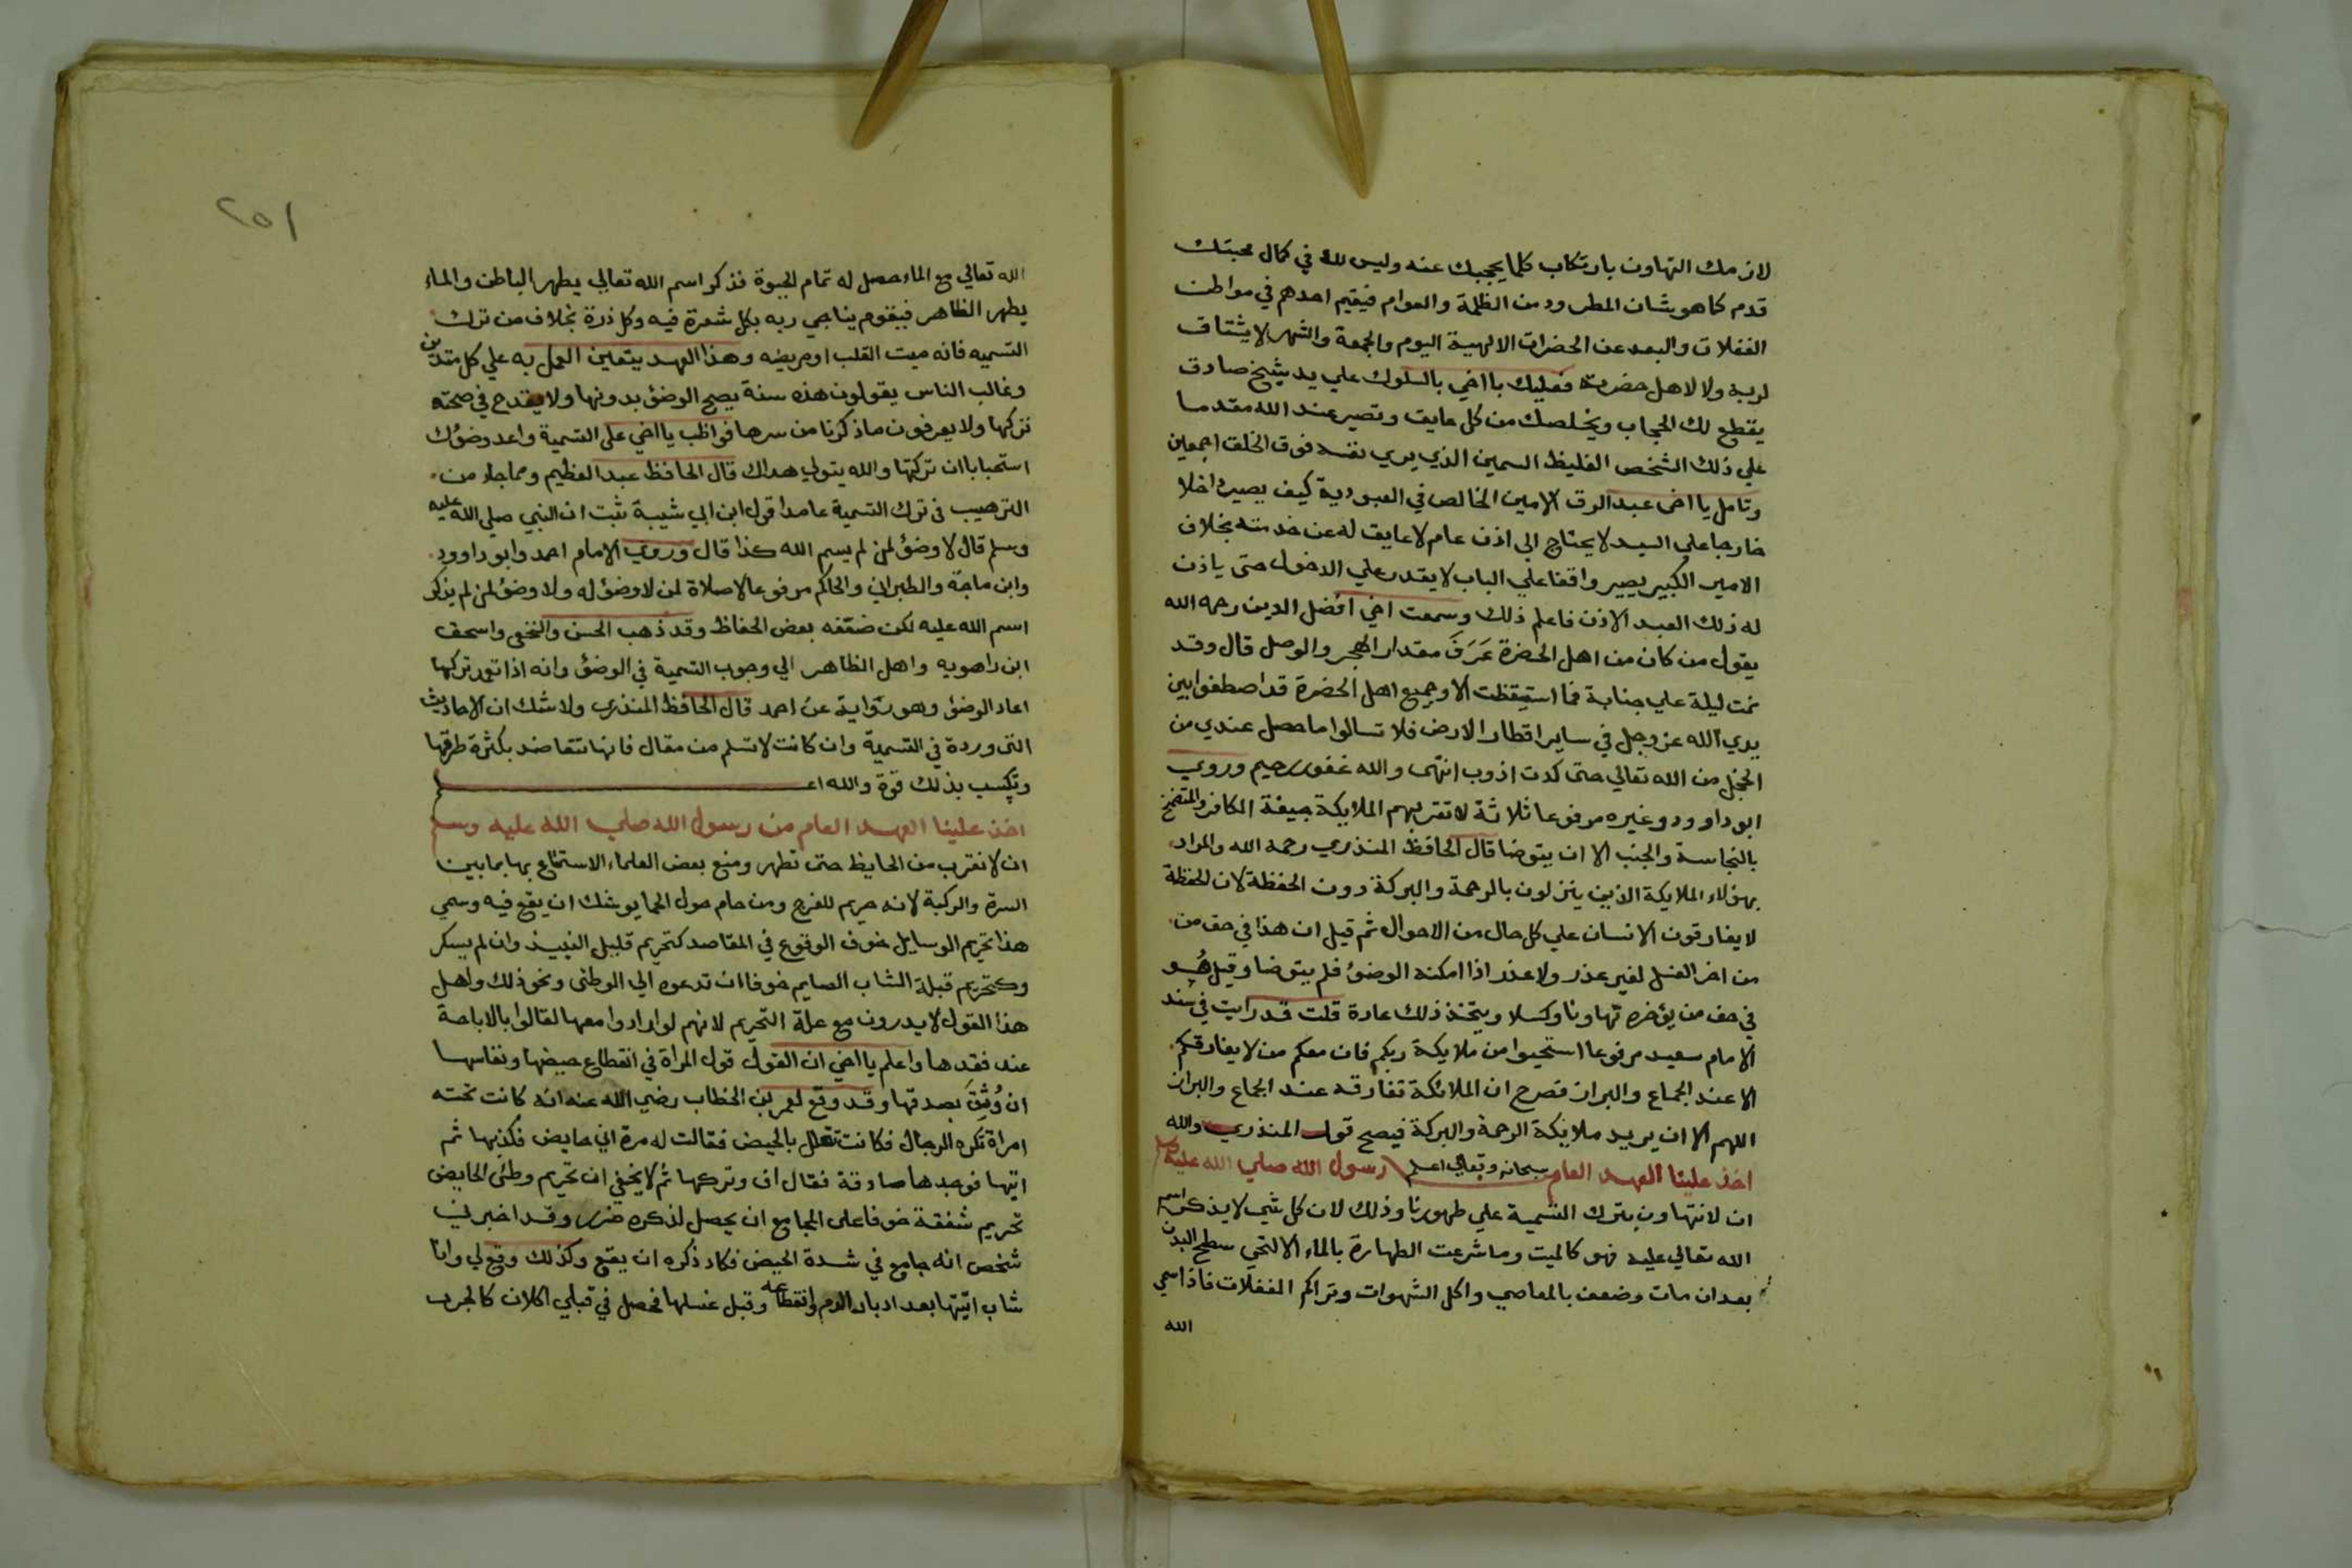 لازمك التهاون بارتكاب كلما يحجبك عنه وليس لك في كمال محبتك
قدم كما هو شان المطرود من الظلمة والعوام فيقيم احدهم في مواطن
الغفلات والبعد عن الحضرات الالهية اليوم والجمعة والشهر لا يشتاق
لربه ولا لاهل حضرته فعليك يا اخي بالسلوك علي يد شيخ صادق
يقطع لك الحجاب ويخلصك من كل عايق وتصير عند الله مقدما
علي ذلك الشخص الغليظ السمين الذي يري نفسه فوق الخلق اجمعين
وتامل يا اخي عبد الرق الامين الخالص في العبودية كيف يصير داخلا
خارجا علي السيد لا يحتاج الي اذن عام لا عايق له عن خدمته بخلاف
الامير الكبير يصير واقفا علي الباب لا يقدر علي الدخول حتى ياذن
له ذلك العبد الاذن فاعلم ذلك وسمعت اخي افضل الدين رحمه الله
يقول من كان من اهل الحضرة عَرَفَ مقدار الهجر والوصل قال وقد
نمت ليلة علي جنابة فما استيقظت الا وجميع اهل الحضرة قد اصطفوا بين
يدي الله عز وجل في ساير اقطار الارض فلا تسالوا ما حصل عندي من
الخجل من الله تعالي حتى كدت اذوب انتهى والله غفور رحيم وروي
ابو داوود وغيره مرفوعا ثلاثة لا تقربهم الملايكة جيفة الكافر والمتضمخ
بالنجاسة والجنب الا ان يتوضا قال الحافظ المنذري رحمه الله والمراد
بهؤلاء الملايكة الذين ينزلون بالرحمة والبركة دون الحفظة لان الحفظة
لا يفارقون الانسان علي كل حال من الاحوال ثم قيل ان هذا في حق من
من اخر الغسل لغير عذر ولا عذر اذا امكنه الوضوء فلم يتوضا وقيل هُو
في حق من يؤخره تهاونا وكسلا ويتخذ ذلك عادة قلت قد رايت في سند
الامام سعيد مرفوعا استحيوا من ملايكة ربكم فان معكم من لا يفارقكم
الا عند الجماع والبراز فصرح ان الملائكة تفارقه عند الجماع والبراز
اللهم الا ان يريد ملايكة الرحمة والبركة فيصح قول المنذري والله
سبحانه وتعالي اعلم
اخذ علينا العهد العام رسول الله صلي الله عليه وسلم
ان لا نتهاون بترك التسمية علي طهورنا وذلك لان كل شي لا يذكر اسم
الله تعالي عليه فهو كالميت وما شرعت الطهارة بالماء الا لتحي سطح البدن
بعد ان مات وضعف بالمعاصي واكل الشهوات وتراكم الغفلات فاذا سمي
الله
٢٥١
الله تعالي مع الماء حصل له تمام الحيوة فذكر اسم الله تعالي يطهر الباطن والماء
يطهر الظاهر فيقوم يناجي ربه بكل شعرة فيه وكل ذرة بخلاف من ترك
التسميه فانه ميت القلب او مريضه وهذا العهد يتعين العمل به علي كل متدين
وغالب الناس يقولون هذه سنة يصح الوضؤ بدونها ولا يقدح في صحته
تركها ولا يعرفون ما ذكرنا من سرها فواظب يا اخي على التسمية واعد وضؤك
استحبابا ان تركتها والله يتولي هداك قال الحافظ عبد العظيم ومما جاء من
الترهيب في ترك التسمية عامدا قول ابن ابي شيبة ثبت ان النبي صلي الله عليه
وسلم قال لا وضؤ لمن لم يسم الله كذا قال وروي الامام احمد وابو داوود
وابن ماجة والطبراني والحاكم مرفوعا لا صلاة لمن لا وضؤ له ولا وضؤ لمن لم يذكر
اسم الله عليه لكن ضعّفه بعض الحفاظ وقد ذهب الحسن والنخعي واسحق
ابن راهويه واهل الظاهر الي وجوب التسمية في الوضؤ وانه اذا تعمد تركها
اعاد الوضؤ وهو رواية عن احمد قال الحافظ المنذري ولا شك ان الاحاديث
التي وردة في التسمية وان كانت لا تسلم من مقال فانها تتعاضد بكثرة طرقها
وتكسب بذلك قوّة والله اعلم
اخذ علينا العهد العام من رسول الله صلي الله عليه وسلم
ان لا نقرب من الحايظ حتى تطهر ومنع بعض العلماء الاستمتاع بها بما بين
السرة والركبة لانه حريم للفرج ومن حام حول الحما يوشك ان يقع فيه وسمي
هذا تحريم الوسايل خوف الوقوع في المقاصد كتحريم قليل النبيذ وان لم يسكر
وكتحريم قبلة الشاب الصايم خوفا ان تدعوه الي الوطئ ونحو ذلك واهل
هذا القول لا يدرون مع علة التحريم لانهم لو داروا معها لقالوا بالاباحة
عند فقدها واعلم يا اخي ان القول قول المراة في انقطاع حيضها ونفاسها
ان وُثِقَ بصدقها وقد وقع لعمر بن الخطاب رضي الله عنه انه كانت تحته
امراة تكره الرجال فكانت تتعلل بالحيض فقالت له مرة اني حايض فكذبها ثم
اتيها فوجدها صادقة فقال اف وتركها ثم لا يخفي ان تحريم وطئ الحايض
تحريم شفقة خوفا على المجامع ان يحصل لذكره ضرر وقد اخبرني
شخص انه جامع في شدة الحيض فكاد ذكره ان يقع وكذلك وقع لي وانا
شاب اتيتها بعد ادبار الدم وانقطاعه وقبل غسلها فحصل في قبلي اكلان كالجرب